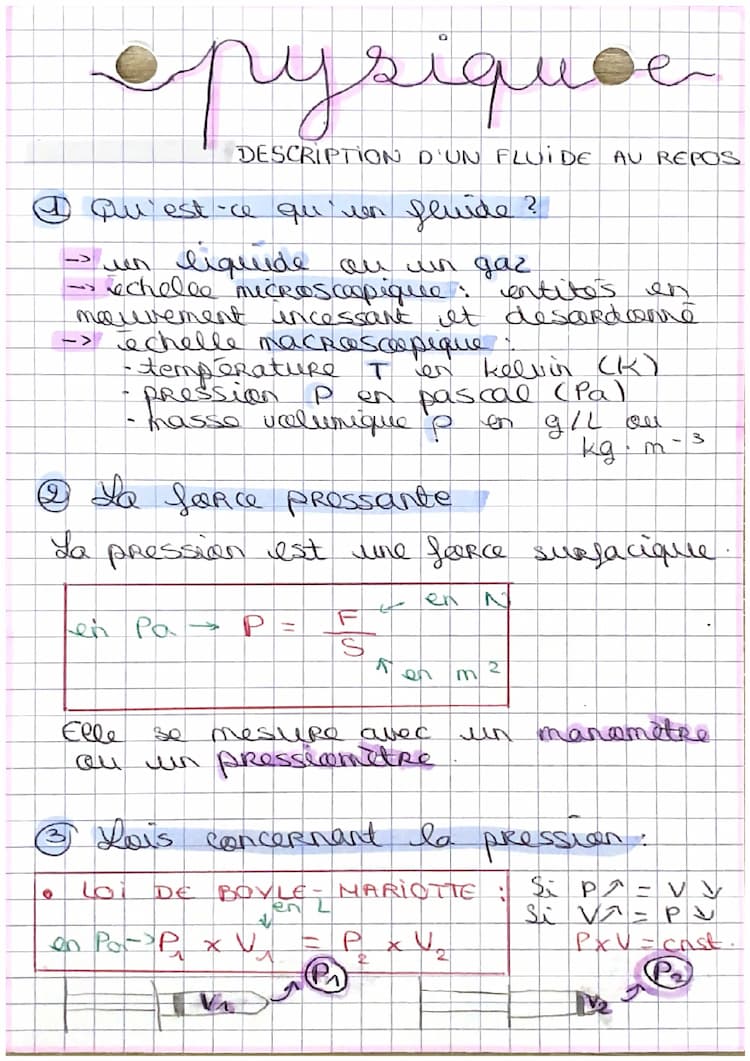 pysique
DESCRIPTION D'UN FLUIDE AU REPOS
① Qu'est-ce qu'un fluide ?
→ un liquide ou un gaz
→ échelle microscopique : entités en
mouvement incessant et désordonné
→ échelle macroscopique :
- température T en kelvin (K)
- pression P en pascal (Pa)
- masse volumique ρ en g/L ou
kg.m⁻³
② La force pressante
La pression est une force surfacique.
en Pa → P = F/S ← en N
↑ en m²
Elle se mesure avec un manomètre
ou un pressiomètre.
③ Lois concernant la pression :
• LOI DE BOYLE-MARIOTTE :
en L
en Pa → P₁ x V₁ = P₂ x V₂
Si P↗ = V↘
Si V↗ = P↘
P x V = cnst.
V₁ → P₁
V₂ → P₂